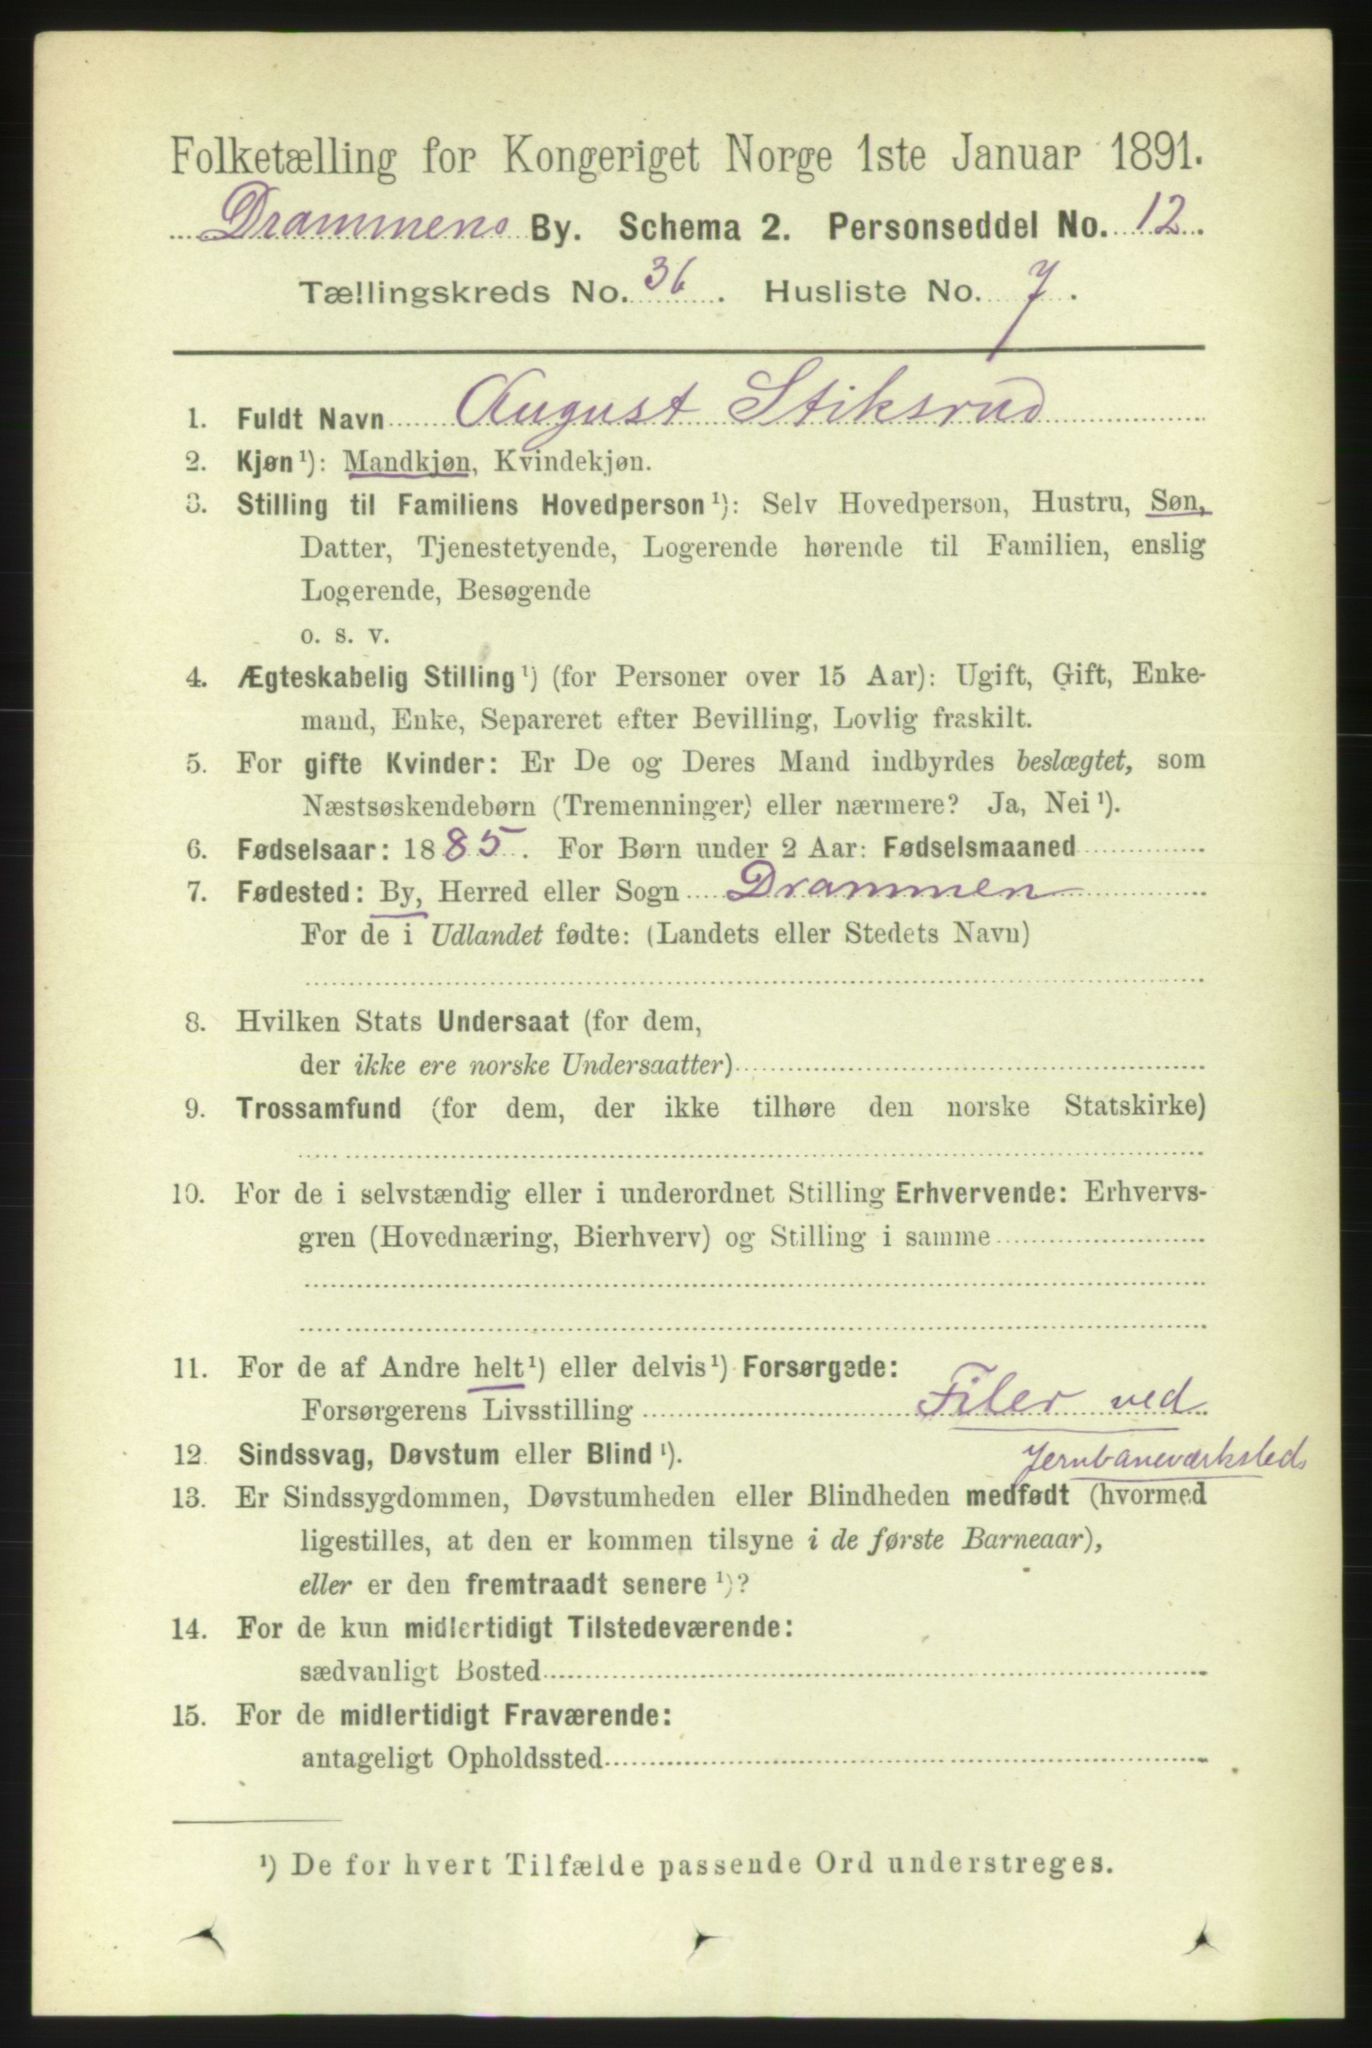 Folketælling for Kongeriget Norge 1ste Januar 1891.
Drammens By. Schema 2. Personseddel No. 12.
Tællingskreds No. 36. Husliste No. 7.
1. Fuldt Navn August Stiksrud
2. Kjøn¹): Mandkjøn, Kvindekjøn.
3. Stilling til Familiens Hovedperson¹): Selv Hovedperson, Hustru, Søn,
Datter, Tjenestetyende, Logerende hørende til Familien, enslig
Logerende, Besøgende
o. s. v.
4. Ægteskabelig Stilling¹) (for Personer over 15 Aar): Ugift, Gift, Enke-
mand, Enke, Separeret efter Bevilling, Lovlig fraskilt.
5. For gifte Kvinder: Er De og Deres Mand indbyrdes beslægtet, som
Næstsøskendebørn (Tremenninger) eller nærmere? Ja, Nei¹).
6. Fødselsaar: 1885. For Børn under 2 Aar: Fødselsmaaned
7. Fødested: By, Herred eller Sogn Drammen
For de i Udlandet fødte: (Landets eller Stedets Navn)
8. Hvilken Stats Undersaat (for dem,
der ikke ere norske Undersaatter)
9. Trossamfund (for dem, der ikke tilhøre den norske Statskirke)
10. For de i selvstændig eller i underordnet Stilling Erhvervende: Erhvervs-
gren (Hovednæring, Bierhverv) og Stilling i samme
11. For de af Andre helt¹) eller delvis¹) Forsørgede:
Forsørgerens Livsstilling Filer ved
Jernbaneværksteds
12. Sindssvag, Døvstum eller Blind¹).
13. Er Sindssygdommen, Døvstumheden eller Blindheden medfødt (hvormed
ligestilles, at den er kommen tilsyne i de første Barneaar),
eller er den fremtraadt senere¹)?
14. For de kun midlertidigt Tilstedeværende:
sædvanligt Bosted
15. For de midlertidigt Fraværende:
antageligt Opholdssted
¹) De for hvert Tilfælde passende Ord understreges.